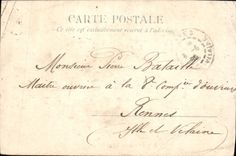 CARTE POSTALE
Ce côté est exclusivement réservé à l'adresse
Monsieur Pierre Bataille
Maître ouvrier à la 8e Compie d'ouvriers
Rennes
Ille et Vilaine